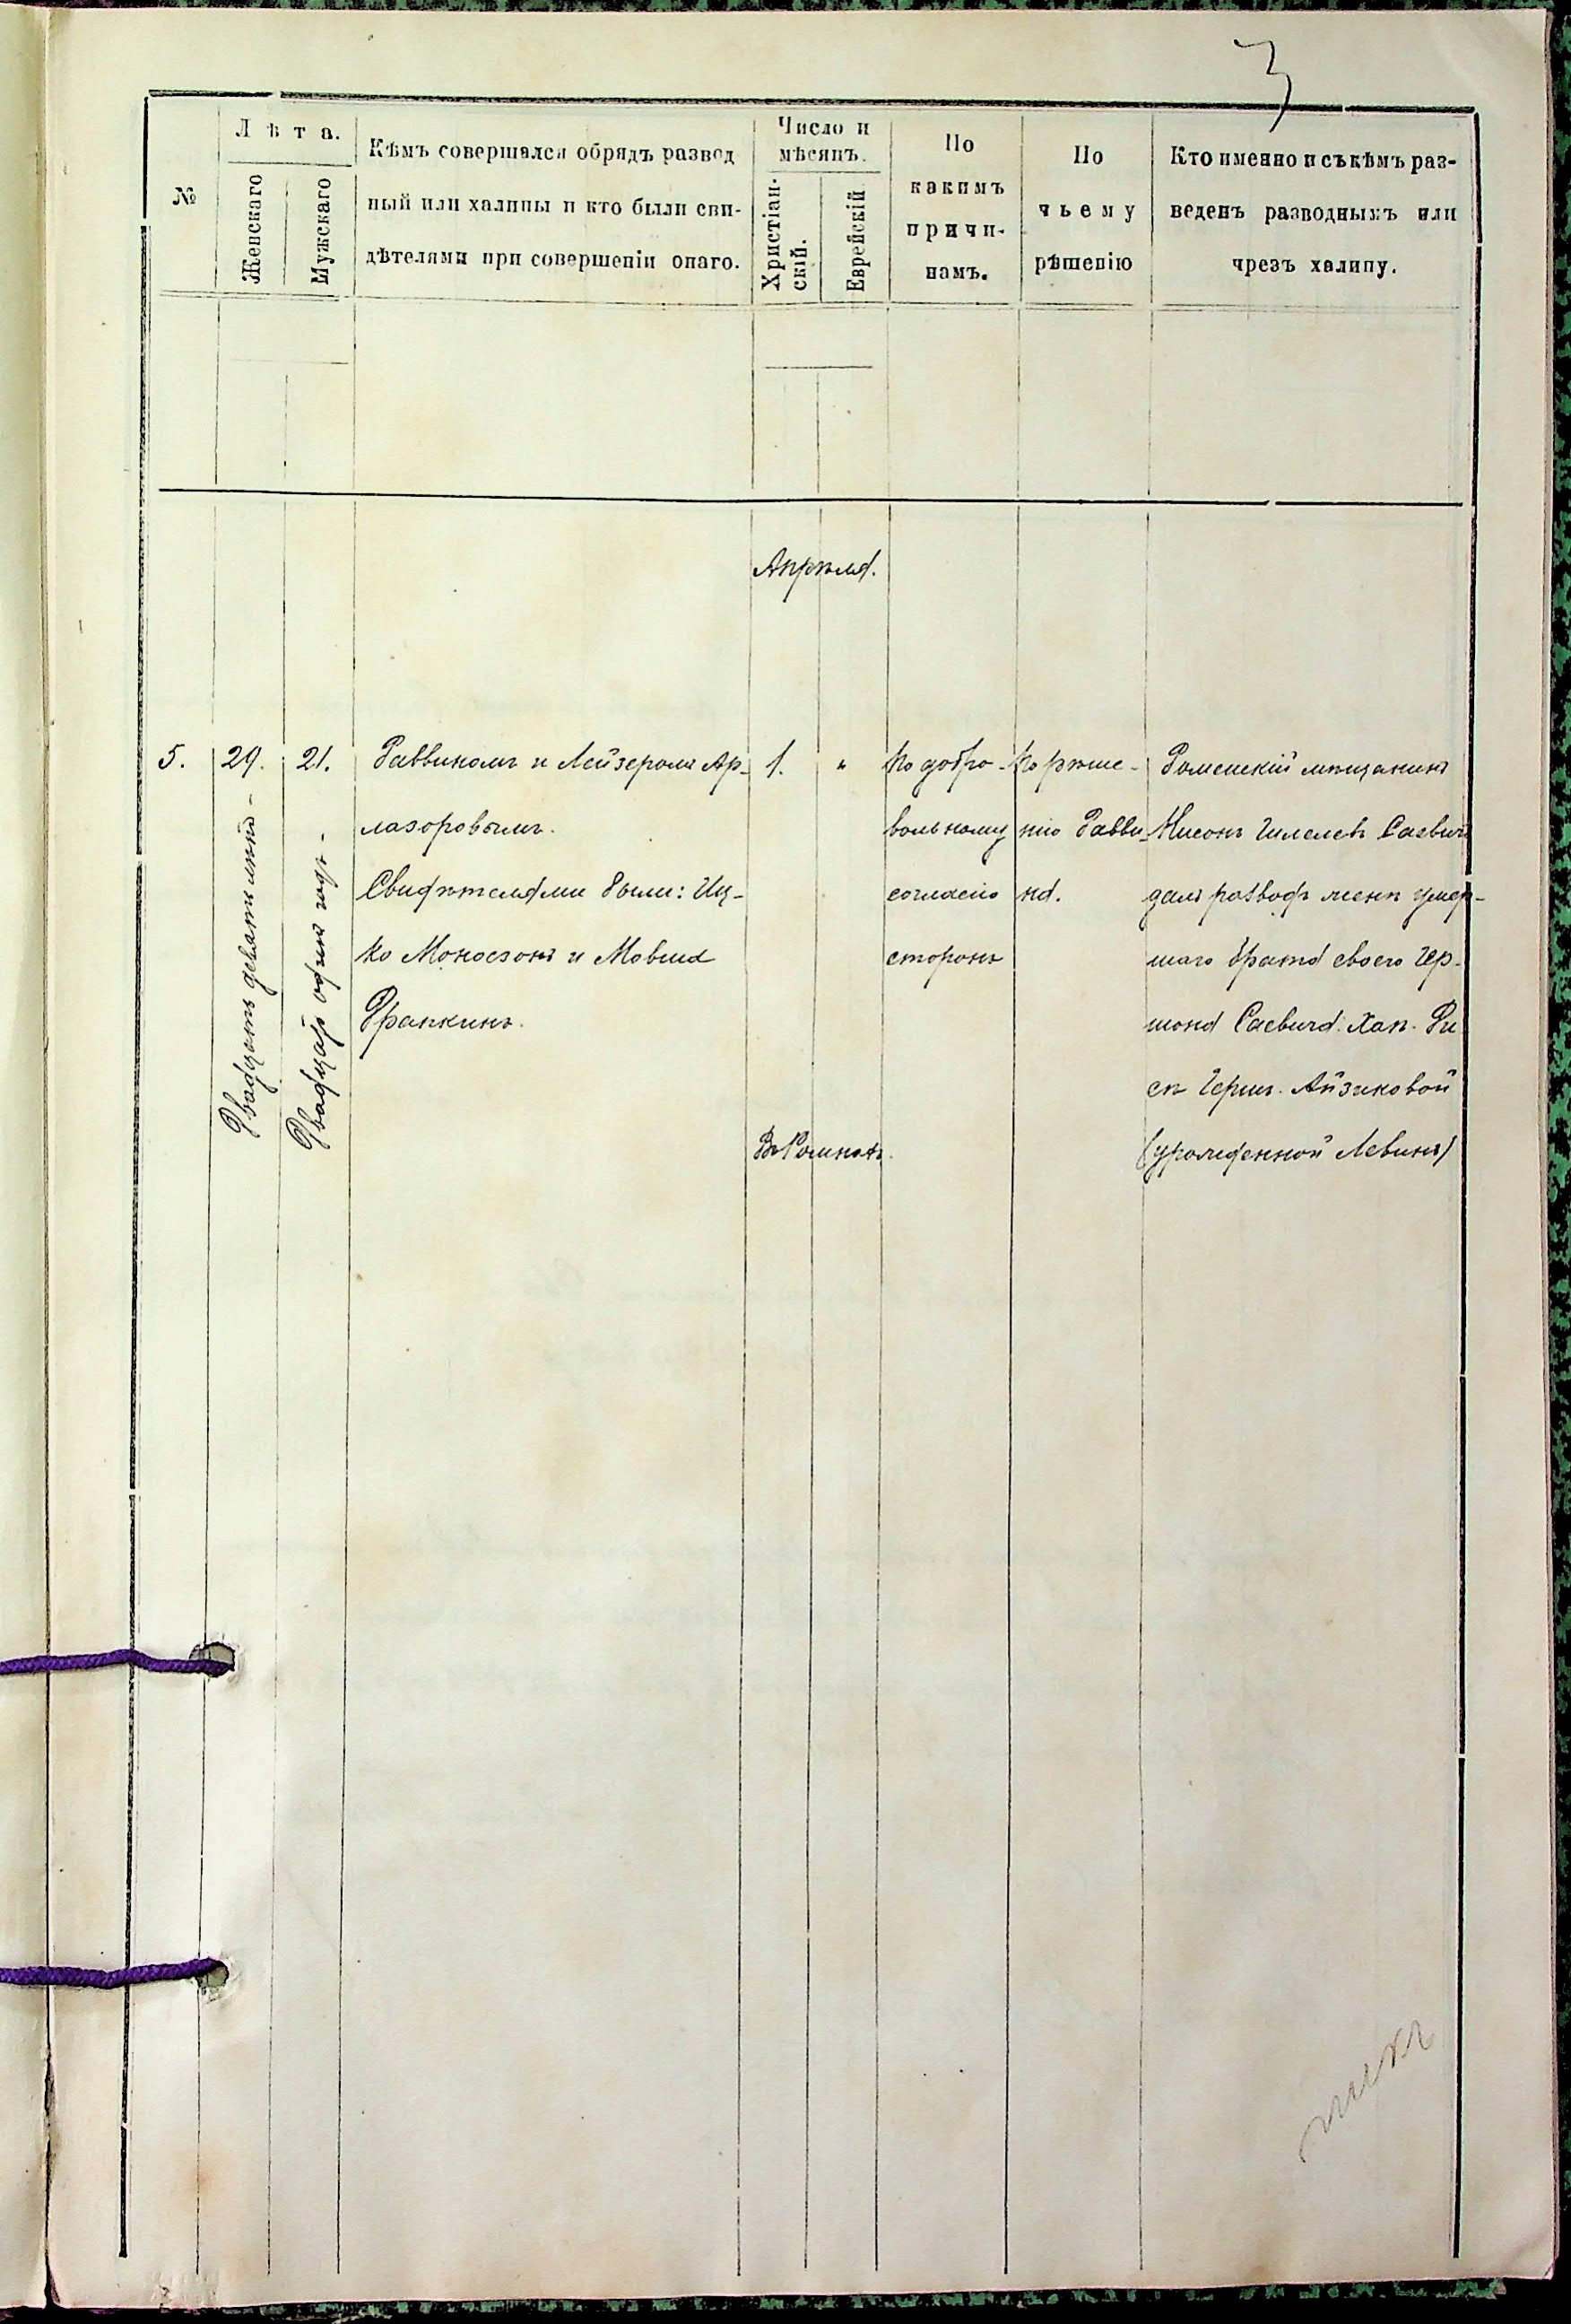 3
№
Лѣта.
Женскаго
Мужскаго
Кѣмъ совершался обрядъ развод
ный или халицы и кто были сви-
дѣтелями при совершеніи онаго.
Число и
мѣсяцъ.
Христіан-
скій.
Еврейскій
По
какимъ
причи-
намъ.
По
чьему
рѣшенію
Кто именно и съ кѣмъ раз-
веденъ разводнымъ или
чрезъ халицу.
Апрѣля.
5.
29.
Двадцать девять лѣтъ -
21.
Двадцать одинъ годъ -
Раввиномъ и Лейзеромъ Ар-
лазоровымъ.
Свидѣтелями были: Иц-
ко Моносзонъ и Мовша
Фрапкинъ.
1.
"
Въ Ромнахъ.
По добро-
вольному
согласію
сторонъ
По рѣше-
нію Равви-
на.
Роменскій мѣщанинъ
Нисонъ Гилелевъ Слевичъ
далъ разводъ женѣ умер-
шаго брата своего Гер-
шона Слевича: Хап. Ри
сѣ Герш. Айзиковой
(урожденной Левинъ)